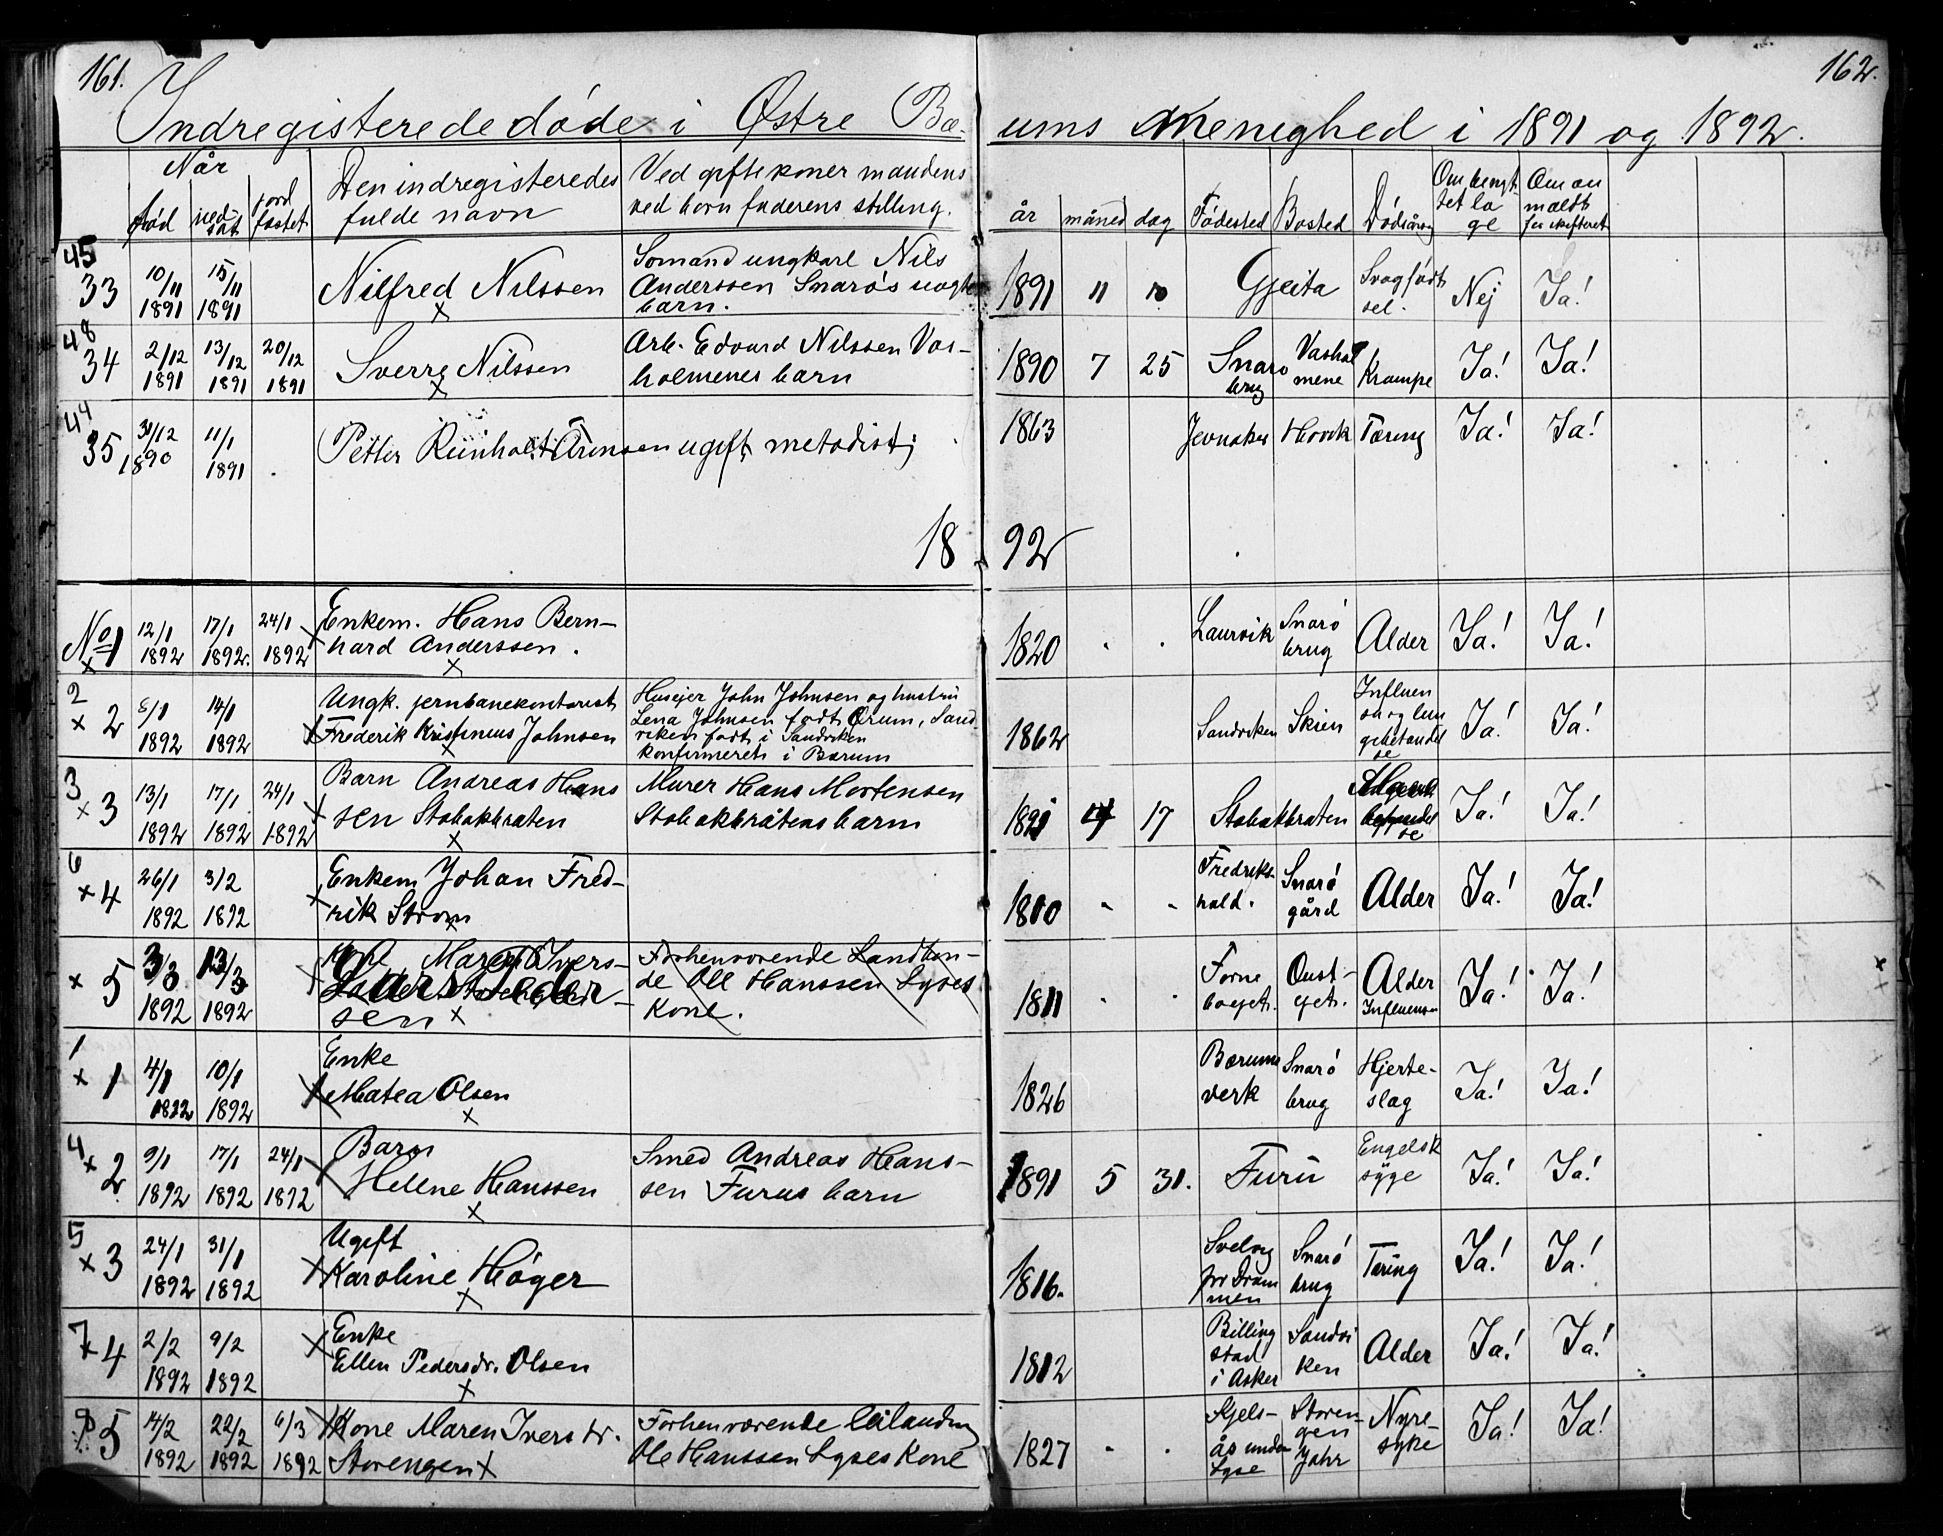 161.
162.
Indregisterede døde i Østre Bæ-
ums menighed i 1891 og 1892.
Når
død
ned-
sat.
jord
fæstet.
Den indregisteredes
fulde navn
Ved gifte koner mandens
ved børn faderens stilling.
år måned dag Fødested Bosted Dødsårsag
Om
tet la
ge
Om an
meldt
for skifteret
45
33 10/11 1891 15/11 1891
Nilfred Nilssen
x
Sømand ungkarl Nils
Anderssen Snarøs uægte
barn.
1891 11 10 Gjeita
Svagfødt
sel.
Nej Ja!
48
34 2/12 1891 13/12 1891 20/12 1891
Sverre Nilssen
x
Arb. Edvard Nilssen Vas-
holmenes barn
1890 7 25
Snarø
brug
Vashol
mene
Krampe Ja! Ja!
44
35 31/12 1890 11/1 1891
Petter Reinholt Arensen ugift metodist;
1863 Jevnaker Høvik Tæring Ja! Ja!
1892
No 1
x
12/1 1892 17/1 1892. 24/1 1892
x Enkem. Hans Bern-
hard Anderssen.
x
1820 Laurvik
Snarø
brug
Alder Ja! Ja!
2
x 2 5/1 1892 14/1 1892
Ungk. jernbanekontorist
x Frederik Kristinius Johnsen
x
Husejer John Johnsen og hustru
Lena Johnsen født Ørum, Sand
viken født i Sandviken
konfirmeret i Bærum
1862 Sandviken Skien
Influen
sa og lun
gebetændel
se
Ja! Ja!
3
x 3 13/1 1892 17/1 1892 24/1 1892
Barn Andreas Hans
x sen Stabækbraten
x
Murer Hans Mortensen
Stabækbråtens barn
1891 17 Stabækbraten
se
Ja! Ja!
6
x 4 26/1 1892 3/2 1892
Enkem Johan Fred-
x rik Strøm
x
1810
Fredriks-
hald.
Snarø
gård
Alder Ja! Ja!
x 5 3/3 1892 13/3 1892
x Kone Maren Ivers-
Lars Peder-
sen x
Forhenværende Landbon-
de Ole Hanssen Lyses
Kone.
1811
Forne
boejet.
Oust-
øjet.
Alder
Influensa
Ja! Ja!
x
1
x 1 4/1 1892 10/1 1892
Enke
x Matea Olsen
x
1826
Bærums
verk
Snarø
brug
Hjerte-
slag
Ja! Ja!
4
x 2 9/1 1892 17/1 1892 24/1 1892
x Barn
Helene Hanssen
x
Smed Andreas Hans-
sen Furus barn
1891 5 31. Furu
Engelsk
syge
Ja! Ja!
5
x 3 24/1 1892 31/1 1892
Ugift
x Karoline Høger
x
1816.
Svelvig
for Dram
men
Snarø
brug
Tæring Ja! Ja!
7
x 4 2/2 1892 9/2 1892
x Enke
Ellen Pedersdr. Olsen
x
1812
Billing
stad
i Asker
Sandvi
ken
Alder Ja! Ja!
5 14/2 1892 22/2 1892 6/3 1892
x Kone Maren Iversdr.
Storengen x
Forhenværende leilænding
Ole Hanssen Lyses Kone
1827
Kjels-
ås under
Lyse
Storen-
gen
Jahr
Nyre-
syke
Ja! Ja!